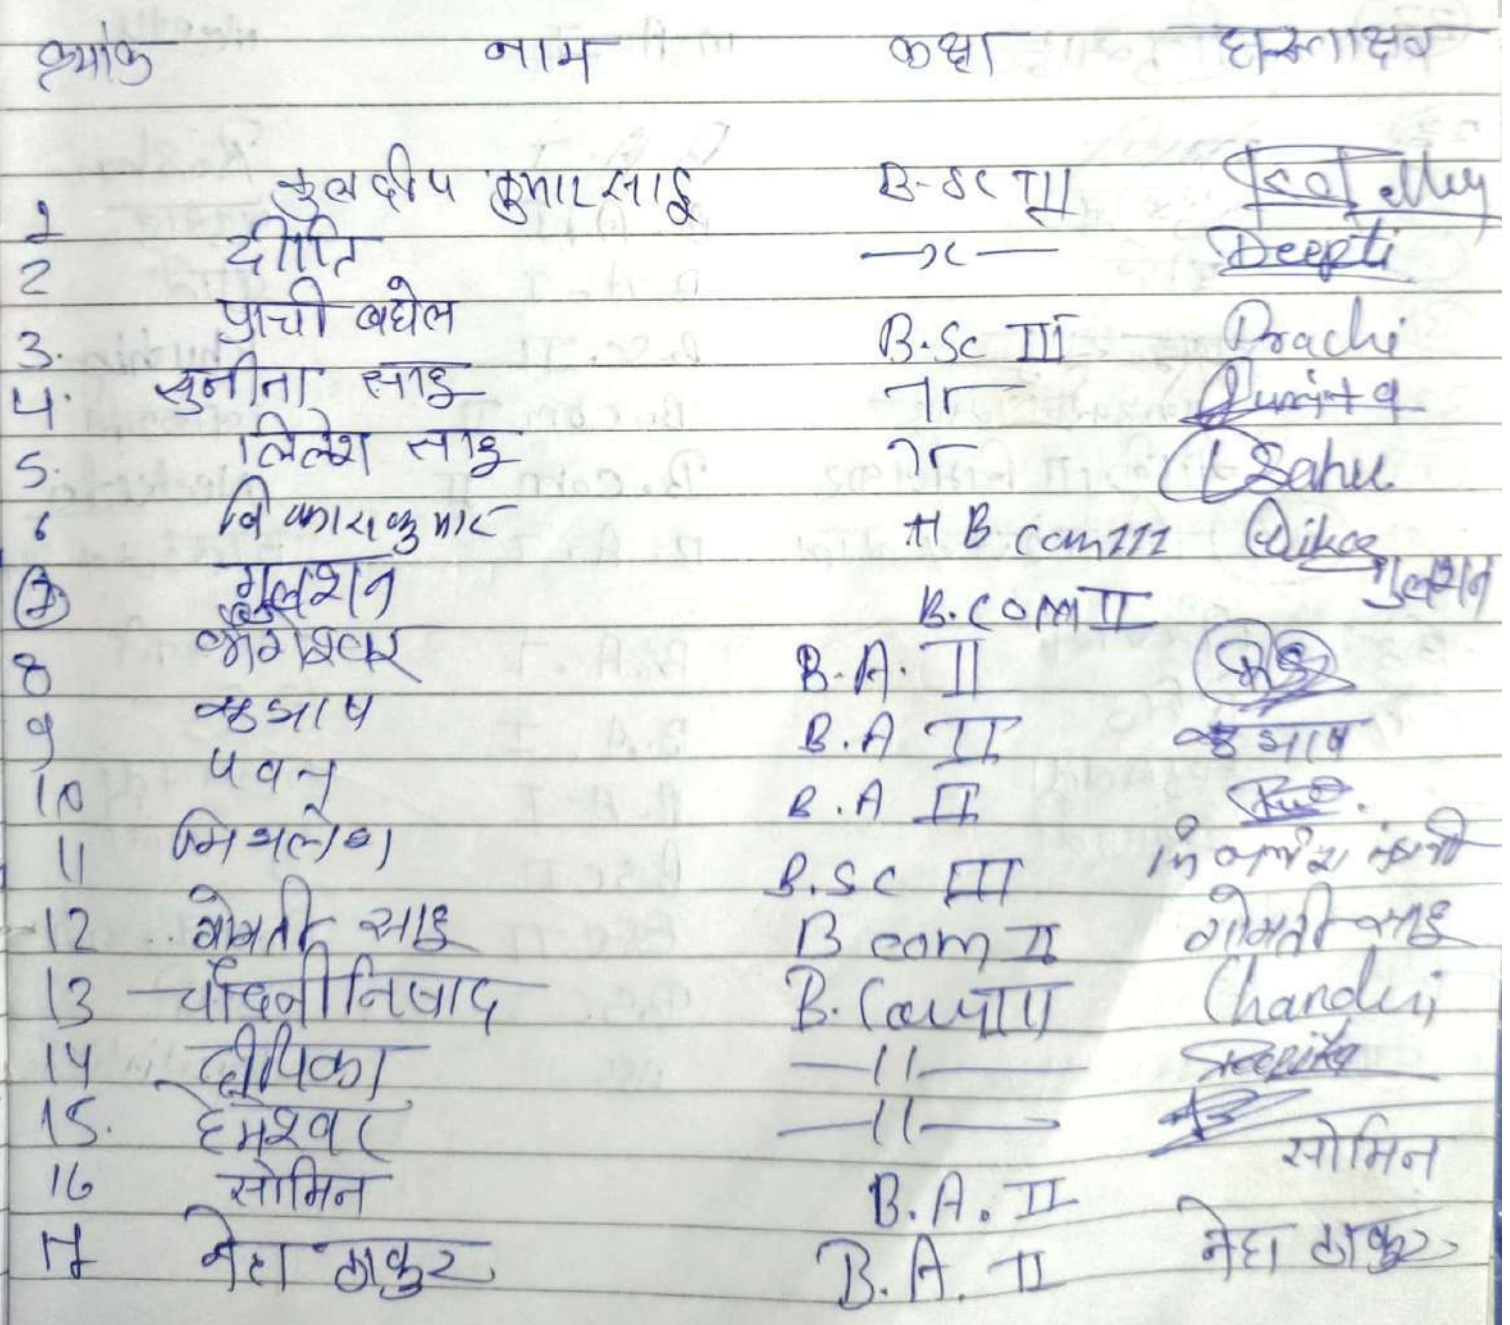 क्रमांक नाम कक्षा हस्ताक्षर
1 कुलदीप कुमार साहू B-Sc III
2 दीप्ति —x— Deepti
3. प्राची बघेल B.Sc III Prachi
4. सुनीता साहू Sunita
5. लिलेश साहू Sahu
6 विकास कुमार B com III Vikas
7 गुलशन B.COM II गुलशन
8 B.A. II
9 B.A II
10 पवन B.A II
11 मिथलेश B.SC III
12 गोमती साहू B com II गोमती साहू
13 चाँदनी निषाद B. Com III Chandni
14 दीपिका —11— Deepika
15. हेमेश्वर —11—
16 सोमिन B.A. II सोमिन
17 नेहा ठाकुर B.A. II नेहा ठाकुर